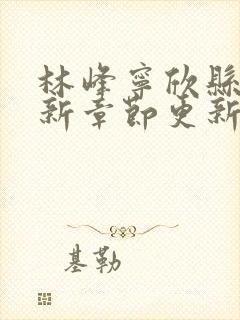 林峰寧欣縣
新章節更新
基勒